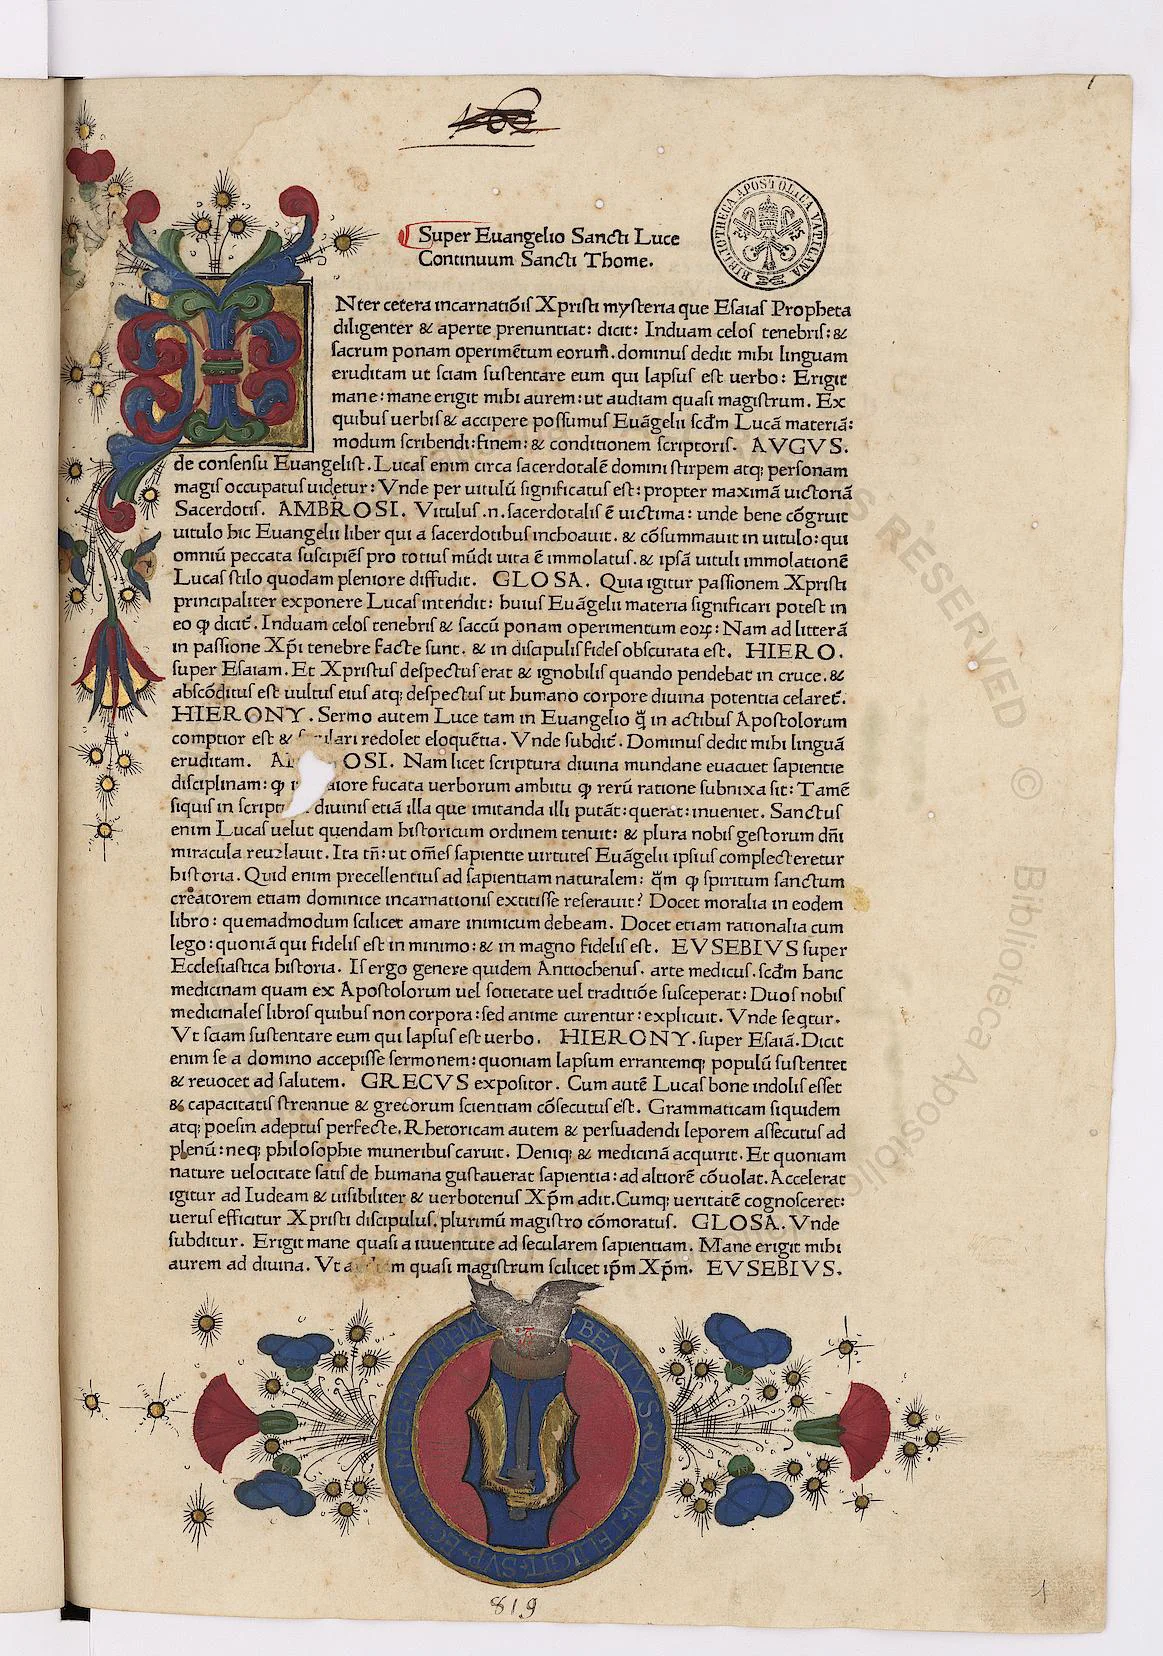 1
Super Euangelio Sancti Luce
Continuum Sancti Thome.
BIBLIOTHECA APOSTOLICA VATICANA
INter cetera incarnatiõis Xpristi mysteria que Esaias Propheta
diligenter & aperte prenuntiat: dicit: Induam celos tenebris: &
sacrum ponam operimẽtum eorum. dominus dedit mihi linguam
eruditam ut sciam sustentare eum qui lapsus est uerbo: Erigit
mane: mane erigit mihi aurem: ut audiam quasi magistrum. Ex
quibus uerbis & accipere possumus Euãgelii scđm Lucã materiã:
modum scribendi: finem: & conditionem scriptoris. AVGVS.
de consensu Euangelist. Lucas enim circa sacerdotalẽ domini stirpem atq; personam
magis occupatus uidetur: Vnde per uitulũ significatus est: propter maximã uictoriã
Sacerdotis. AMBROSI. Vitulus .n. sacerdotalis ẽ uictima: unde bene cõgruit
uitulo hic Euangelii liber qui a sacerdotibus inchoauit. & cõsummauit in uitulo: qui
omniũ peccata suscipiẽs pro totius mũdi uita ẽ immolatus. & ipsã uituli immolationẽ
Lucas stilo quodam pleniore diffudit. GLOSA. Quia igitur passionem Xpristi
principaliter exponere Lucas intendit: huius Euãgelii materia significari potest in
eo ꝙ dicit᷑. Induam celos tenebris & saccũ ponam operimentum eoꝝ: Nam ad litterã
in passione Xp̃i tenebre facte sunt. & in discipulis fides obscurata est. HIERO.
super Esaiam. Et Xpristus despectus erat & ignobilis quando pendebat in cruce. &
abscõditus est uultus eius atq; despectus ut humano corpore diuina potentia celaret᷑.
HIERONY. Sermo autem Luce tam in Euangelio q̃ in actibus Apostolorum
comptior est & lari redolet eloquẽtia. Vnde subdit᷑. Dominus dedit mihi linguã
eruditam. A OSI. Nam licet scriptura diuina mundane euacuet sapientie
disciplinam: ꝙ aiore fucata uerborum ambitu ꝙ rerũ ratione subnixa sit: Tamẽ
siquis in script diuinis etiã illa que imitanda illi putãt: querat: inueniet. Sanctus
enim Lucas uelut quendam historicum ordinem tenuit: & plura nobis gestorum dñi
miracula reuelauit. Ita tñ: ut om̃es sapientie uirtutes Euãgelii ipsius complecteretur
historia. Quid enim precellentius ad sapientiam naturalem: q̃m ꝙ spiritum sanctum
creatorem etiam dominice incarnationis extitisse reserauit? Docet moralia in eodem
libro: quemadmodum scilicet amare inimicum debeam. Docet etiam rationalia cum
lego: quoniã qui fidelis est in minimo: & in magno fidelis est. EVSEBIVS super
Ecclesiastica historia. Is ergo genere quidem Antiochenus. arte medicus. scđm hanc
medicinam quam ex Apostolorum uel societate uel traditiõe susceperat: Duos nobis
medicinales libros quibus non corpora: sed anime curentur: explicuit. Vnde seqtur.
Vt sciam sustentare eum qui lapsus est uerbo. HIERONY. super Esaiã. Dicit
enim se a domino accepisse sermonem: quoniam lapsum errantemq; populũ sustentet
& reuocet ad salutem. GRECVS expositor. Cum autẽ Lucas bone indolis esset
& capacitatis strennue & grecorum scientiam cõsecutus est. Grammaticam siquidem
atq; poesin adeptus perfecte. Rhetoricam autem & persuadendi leporem assecutus ad
plenũ: neq; philosophie muneribus caruit. Deniq; & medicinã acquirit. Et quoniam
nature uelocitate satis de humana gustauerat sapientia: ad altiorẽ cõuolat. Accelerat
igitur ad Iudeam & uisibiliter & uerbotenus Xp̃m adit. Cumq; ueritatẽ cognosceret:
uerus efficitur Xpristi discipulus. plurimũ magistro cõmoratus. GLOSA. Vnde
subditur. Erigit mane quasi a iuuentute ad secularem sapientiam. Mane erigit mihi
aurem ad diuina. Vt a m quasi magistrum scilicet ip̃m Xp̃m. EVSEBIVS.
BEATVS·QVI·INTELIGIT·SVP·EGENVM·ET·PAVPEREM
819
1
RESERVED © Biblioteca Apostolica